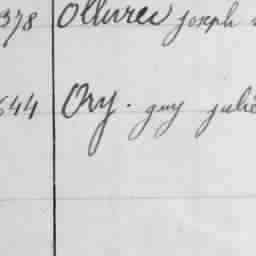 378 Olliviers joseph
644 Ory. guy julie